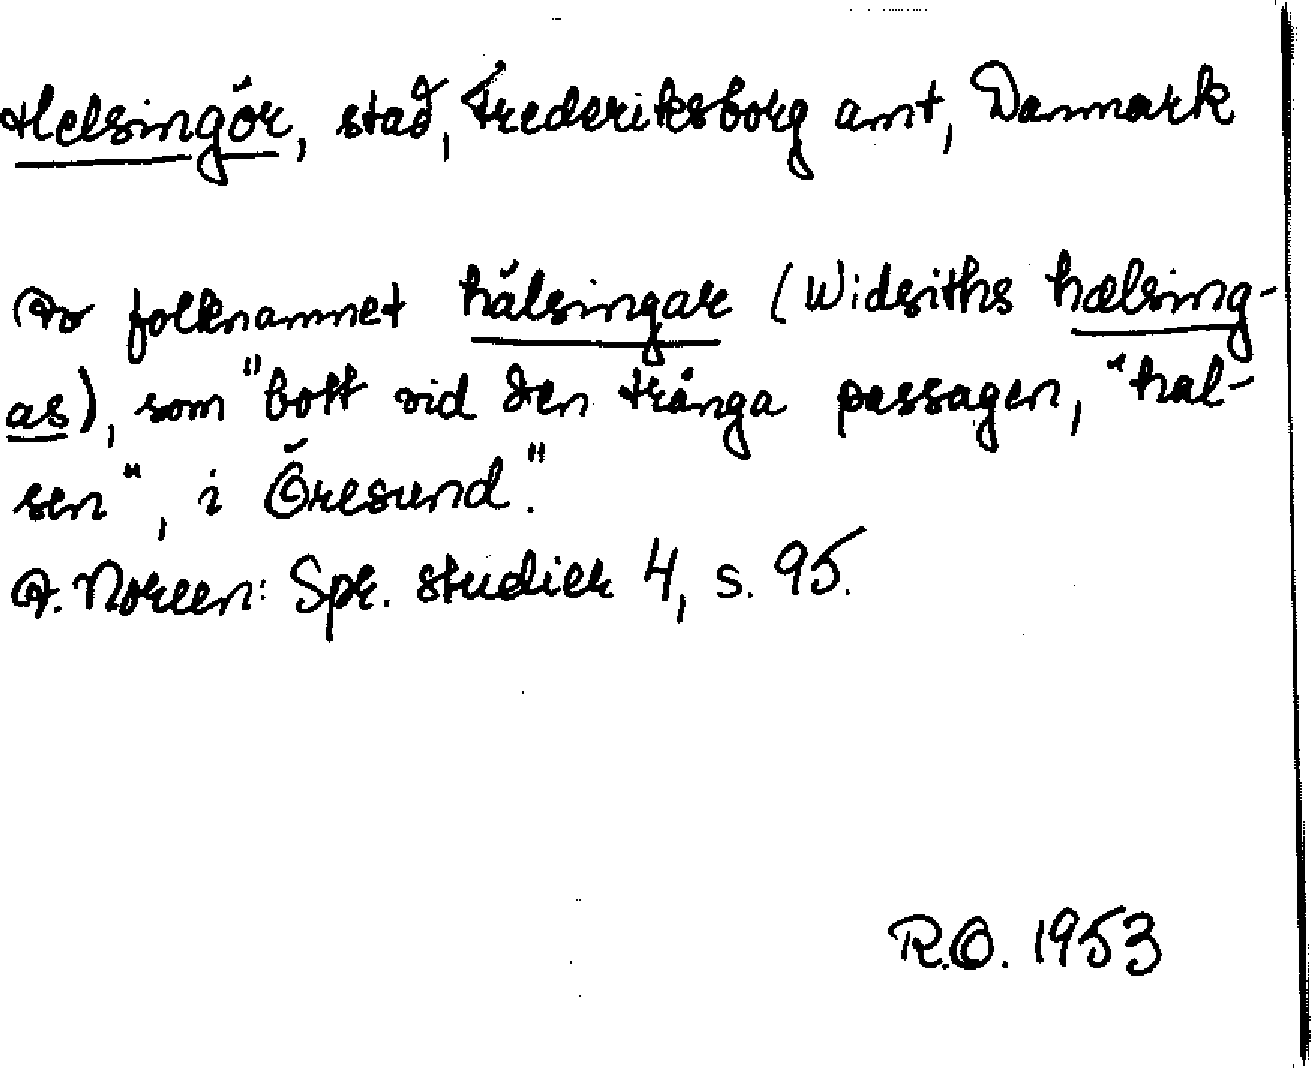 Helsingör, stad, Frederiksborg amt, Danmark
Av folknamnet hälsingar (Widsiths hælsing-
as), som "bott vid den trånga passagen, "hal-
sen", i Öresund."
A. Noreen: Spr. studier 4, s. 95.
R.O. 1953